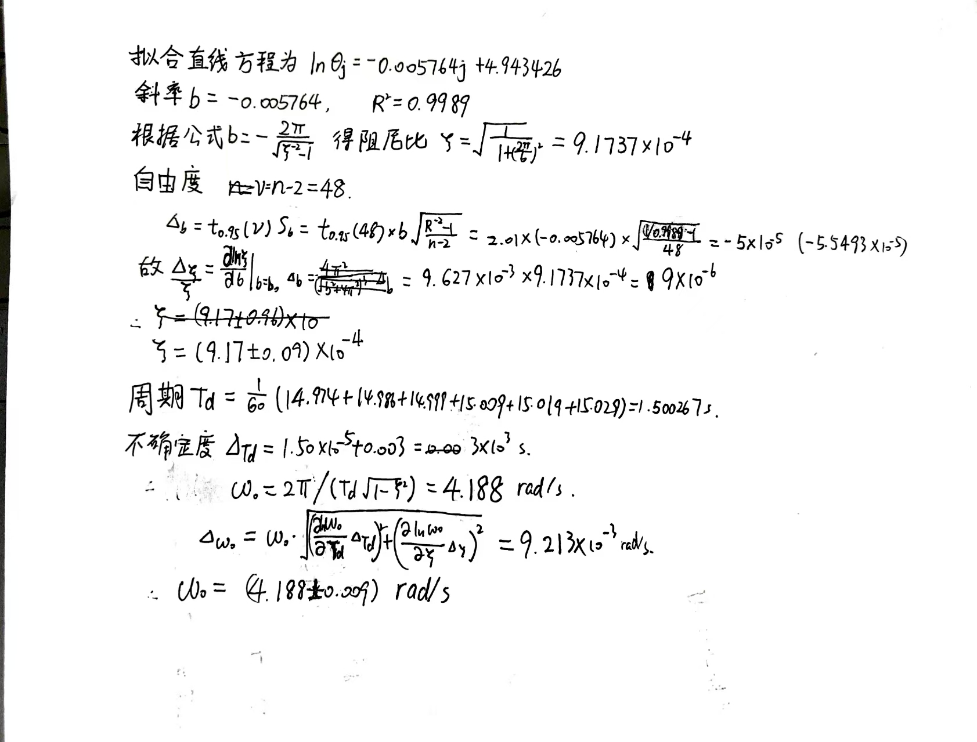 拟合直线方程为 ln θj = -0.005764j + 4.943426
斜率 b = -0.005764, R² = 0.9989
根据公式 b = - 2π/√(ξ⁻²-1) 得阻尼比 ξ = √(1/(1+(2π/b)²)) = 9.1737×10⁻⁴
自由度 ν = n-2 = 48.
Δb = t0.95(ν) Sb = t0.95(48)×b √((R⁻²-1)/(n-2)) = 2.01×(-0.005764)×√((1/0.9989-1)/48) = -5×10⁻⁵ (-5.5493×10⁻⁵)
故 Δξ/ξ = ∂lnξ/∂b |b=b, Δb = = 9.627×10⁻³×9.1737×10⁻⁴ = 9×10⁻⁶
∴ ξ = (9.17±0.96)×10
ξ = (9.17±0.09)×10⁻⁴
周期 Td = 1/60 (14.974+14.986+14.999+15.009+15.019+15.029) = 1.500267s.
不确定度 ΔTd = 1.50×10⁻⁵+0.003 = 3×10³ s.
∴ ω₀ = 2π/(Td√(1-ξ²)) = 4.188 rad/s.
Δω₀ = ω₀·√((∂lnω₀/∂Td ΔTd)²+(∂lnω₀/∂ξ Δξ)²) = 9.213×10⁻³ rad/s.
∴ ω₀ = (4.188±0.009) rad/s